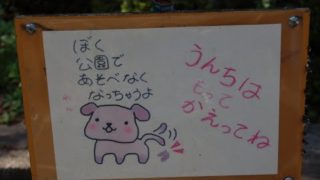 ぼく
公園で
あそべなく
なっちゃうよ
うんちは
もって
かえってね